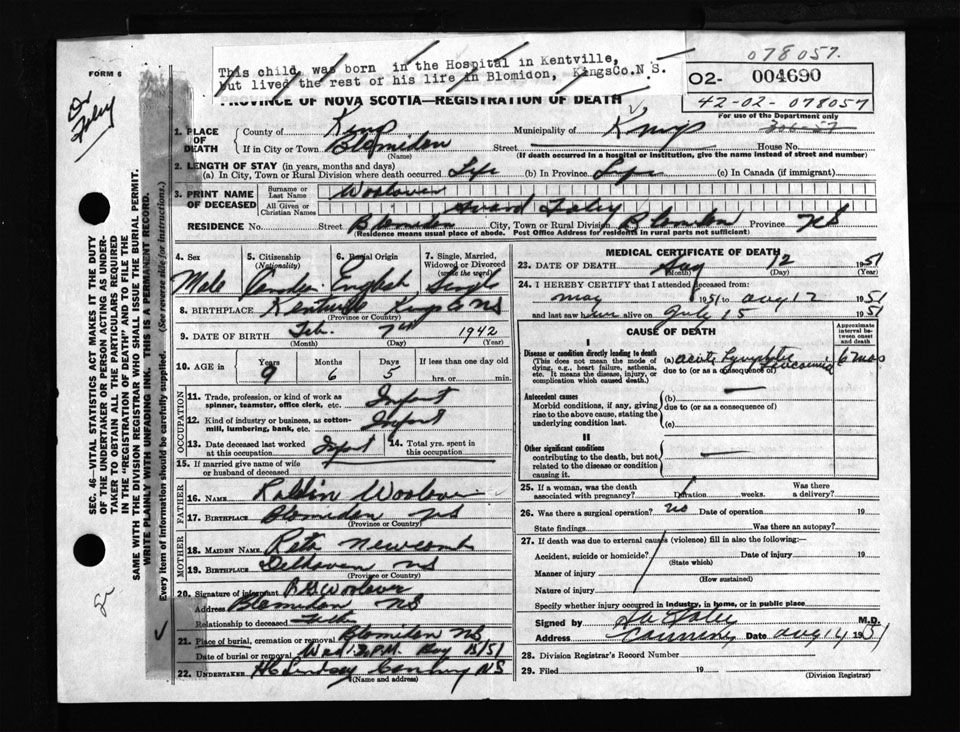 078057.
FORM 6
This child was born in the Hospital in Kentville,
but lived the rest of his life in Blomidon, KingsCo.N S.
O2- 004690
42-02-078057
For use of the Department only
Dr Foley
PROVINCE OF NOVA SCOTIA—REGISTRATION OF DEATH
1. PLACE OF DEATH
County of Kings Municipality of Kings
If in City or Town Blomidon Street House No.
(Name) (If death occurred in a hospital or institution, give the name instead of street and number)
2. LENGTH OF STAY (in years, months and days)
(a) In City, Town or Rural Division where death occurred Life (b) In Province Life (c) In Canada (if immigrant)
3. PRINT NAME OF DECEASED
Surname or Last Name Woolaver
All Given or Christian Names Foley
RESIDENCE No. Street Blomidon City, Town or Rural Division Blomidon Province NS
(Residence means usual place of abode. Post Office Address for residents in rural parts not sufficient)
4. Sex 5. Citizenship (Nationality) 6. Racial Origin 7. Single, Married, Widowed or Divorced (write the word)
Male English Single
8. BIRTHPLACE Kentville Kings Co NS
(Province or Country)
9. DATE OF BIRTH Feb. 7th 1942
(Month) (Day) (Year)
10. AGE in Years Months Days If less than one day old
9 6 5 hrs. or min.
OCCUPATION
11. Trade, profession, or kind of work as spinner, teamster, office clerk, etc. Infant
12. Kind of industry or business, as cotton-mill, lumbering, bank, etc. Infant
13. Date deceased last worked at this occupation Infant 14. Total yrs. spent in this occupation
15. If married give name of wife or husband of deceased
FATHER
16. NAME Woolaver
17. BIRTHPLACE Blomidon NS
(Province or Country)
MOTHER
18. MAIDEN NAME Reta Newcomb
19. BIRTHPLACE Delhaven NS
(Province or Country)
20. Signature of informant Woolaver
Address Blomidon NS
Relationship to deceased Father
21. Place of burial, cremation or removal Blomidon NS
Date of burial or removal Wed P.M. Aug 15/51
22. UNDERTAKER H C Lindsay Canning NS
(Name and address)
MEDICAL CERTIFICATE OF DEATH
23. DATE OF DEATH Aug 12 1951
(Month) (Day) (Year)
24. I HEREBY CERTIFY that I attended deceased from
May 1951 to Aug 12 1951
and last saw alive on July 15 1951
CAUSE OF DEATH
Approximate interval between onset and death
I
Disease or condition directly leading to death
(This does not mean the mode of dying, e.g., heart failure, asthenia, etc. It means the disease, injury, or complication which caused death.)
(a) acute Lymphatic Leucaemia 6 mos
due to (or as a consequence of)
Antecedent causes
Morbid conditions, if any, giving rise to the above cause, stating the underlying condition last.
(b)
due to (or as a consequence of)
(c)
II
Other significant conditions
contributing to the death, but not related to the disease or condition causing it.
25. If a woman, was the death associated with pregnancy? Duration weeks. Was there a delivery?
26. Was there a surgical operation? no Date of operation 19
State findings Was there an autopsy?
27. If death was due to external causes (violence) fill in also the following:—
Accident, suicide or homicide? Date of injury 19
(State which)
Manner of injury
(How sustained)
Nature of injury
Specify whether injury occurred in industry, in home, or in public place
Signed by Foley M.D.
Address Canning Date Aug 14 1951
28. Division Registrar's Record Number
29. Filed 19
(Division Registrar)
SEC. 46—VITAL STATISTICS ACT MAKES IT THE DUTY
OF THE UNDERTAKER OR PERSON ACTING AS UNDER-
TAKER TO OBTAIN ALL THE PARTICULARS REQUIRED
IN THE "REGISTRATION OF DEATH" AND TO FILE THE
SAME WITH THE DIVISION REGISTRAR WHO SHALL ISSUE THE BURIAL PERMIT.
WRITE PLAINLY WITH UNFADING INK. THIS IS A PERMANENT RECORD.
Every item of information should be carefully supplied. (See reverse side for instructions.)